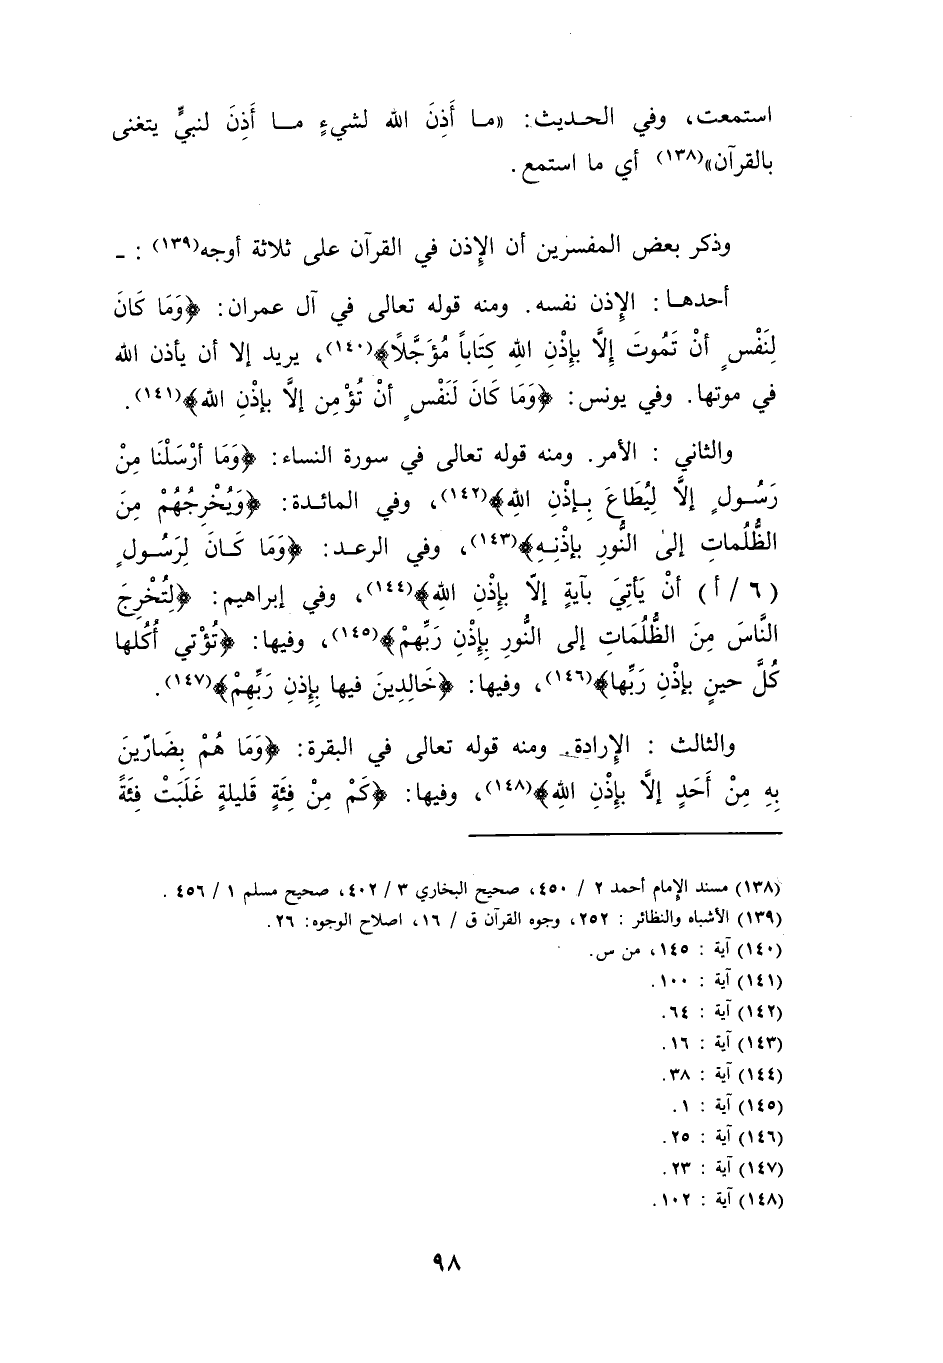 استمعت، وفي الحديث: «ما أَذِنَ الله لشيءٍ ما أَذِنَ لنبيٍّ يتغنى
بالقرآن»(١٣٨) أي ما استمع.
وذكر بعض المفسرين أن الإذن في القرآن على ثلاثة أوجه(١٣٩) : ـ
أحدها: الإذن نفسه. ومنه قوله تعالى في آل عمران: ﴿وَمَا كَانَ
لِنَفْسٍ أنْ تَمُوتَ إِلَّا بِإذْنِ اللهِ كِتَاباً مُؤَجَّلًا﴾(١٤٠)، يريد إلا أن يأذن الله
في موتها. وفي يونس: ﴿وَمَا كَانَ لَنَفْسٍ أنْ تُؤْمِن إلاَّ بإذْنِ الله﴾(١٤١).
والثاني : الأمر. ومنه قوله تعالى في سورة النساء: ﴿وَمَا أرْسَلْنَا مِنْ
رَسُولٍ إلاَّ لِيُطَاعَ بِإذْنِ اللهِ﴾(١٤٢)، وفي المائدة: ﴿وَيُخْرِجُهُمْ مِنَ
الظُّلُمَاتِ إلىٰ النُّورِ بإذْنِهِ﴾(١٤٣)، وفي الرعد: ﴿وَمَا كَانَ لِرَسُولٍ
(٦ / أ) أنْ يَأتِيَ بآيةٍ إلاّ بإِذْنِ اللهِ﴾(١٤٤)، وفي إبراهيم: ﴿لِتُخْرِجَ
النَّاسَ مِنَ الظُّلُمَاتِ إلى النُّورِ بِإذْنِ رَبِّهمْ﴾(١٤٥)، وفيها: ﴿تُؤْتي أُكُلها
كُلَّ حينٍ بإذْنِ رَبِّها﴾(١٤٦)، وفيها: ﴿خَالِدِينَ فيها بِإِذنِ رَبِّهِمْ﴾(١٤٧).
والثالث : الإرادة. ومنه قوله تعالى في البقرة: ﴿وَمَا هُمْ بِضَارّينَ
بِهِ مِنْ أَحَدٍ إلاَّ بإِذْنِ اللهِ﴾(١٤٨)، وفيها: ﴿كَمْ مِنْ فِئَةٍ قَليلةٍ غَلَبَتْ فِئَةً
(١٣٨) مسند الإمام أحمد ٢ / ٤٥٠، صحيح البخاري ٣ / ٤٠٢، صحيح مسلم ١ / ٤٥٦ .
(١٣٩) الأشباه والنظائر : ٢٥٢، وجوه القرآن ق / ١٦، اصلاح الوجوه: ٢٦.
(١٤٠) آية : ١٤٥، من س.
(١٤١) آية : ١٠٠.
(١٤٢) آية : ٦٤.
(١٤٣) آية : ١٦.
(١٤٤) آية : ٣٨.
(١٤٥) آية : ١.
(١٤٦) آية : ٢٥.
(١٤٧) آية : ٢٣.
(١٤٨) آية : ١٠٢.
٩٨